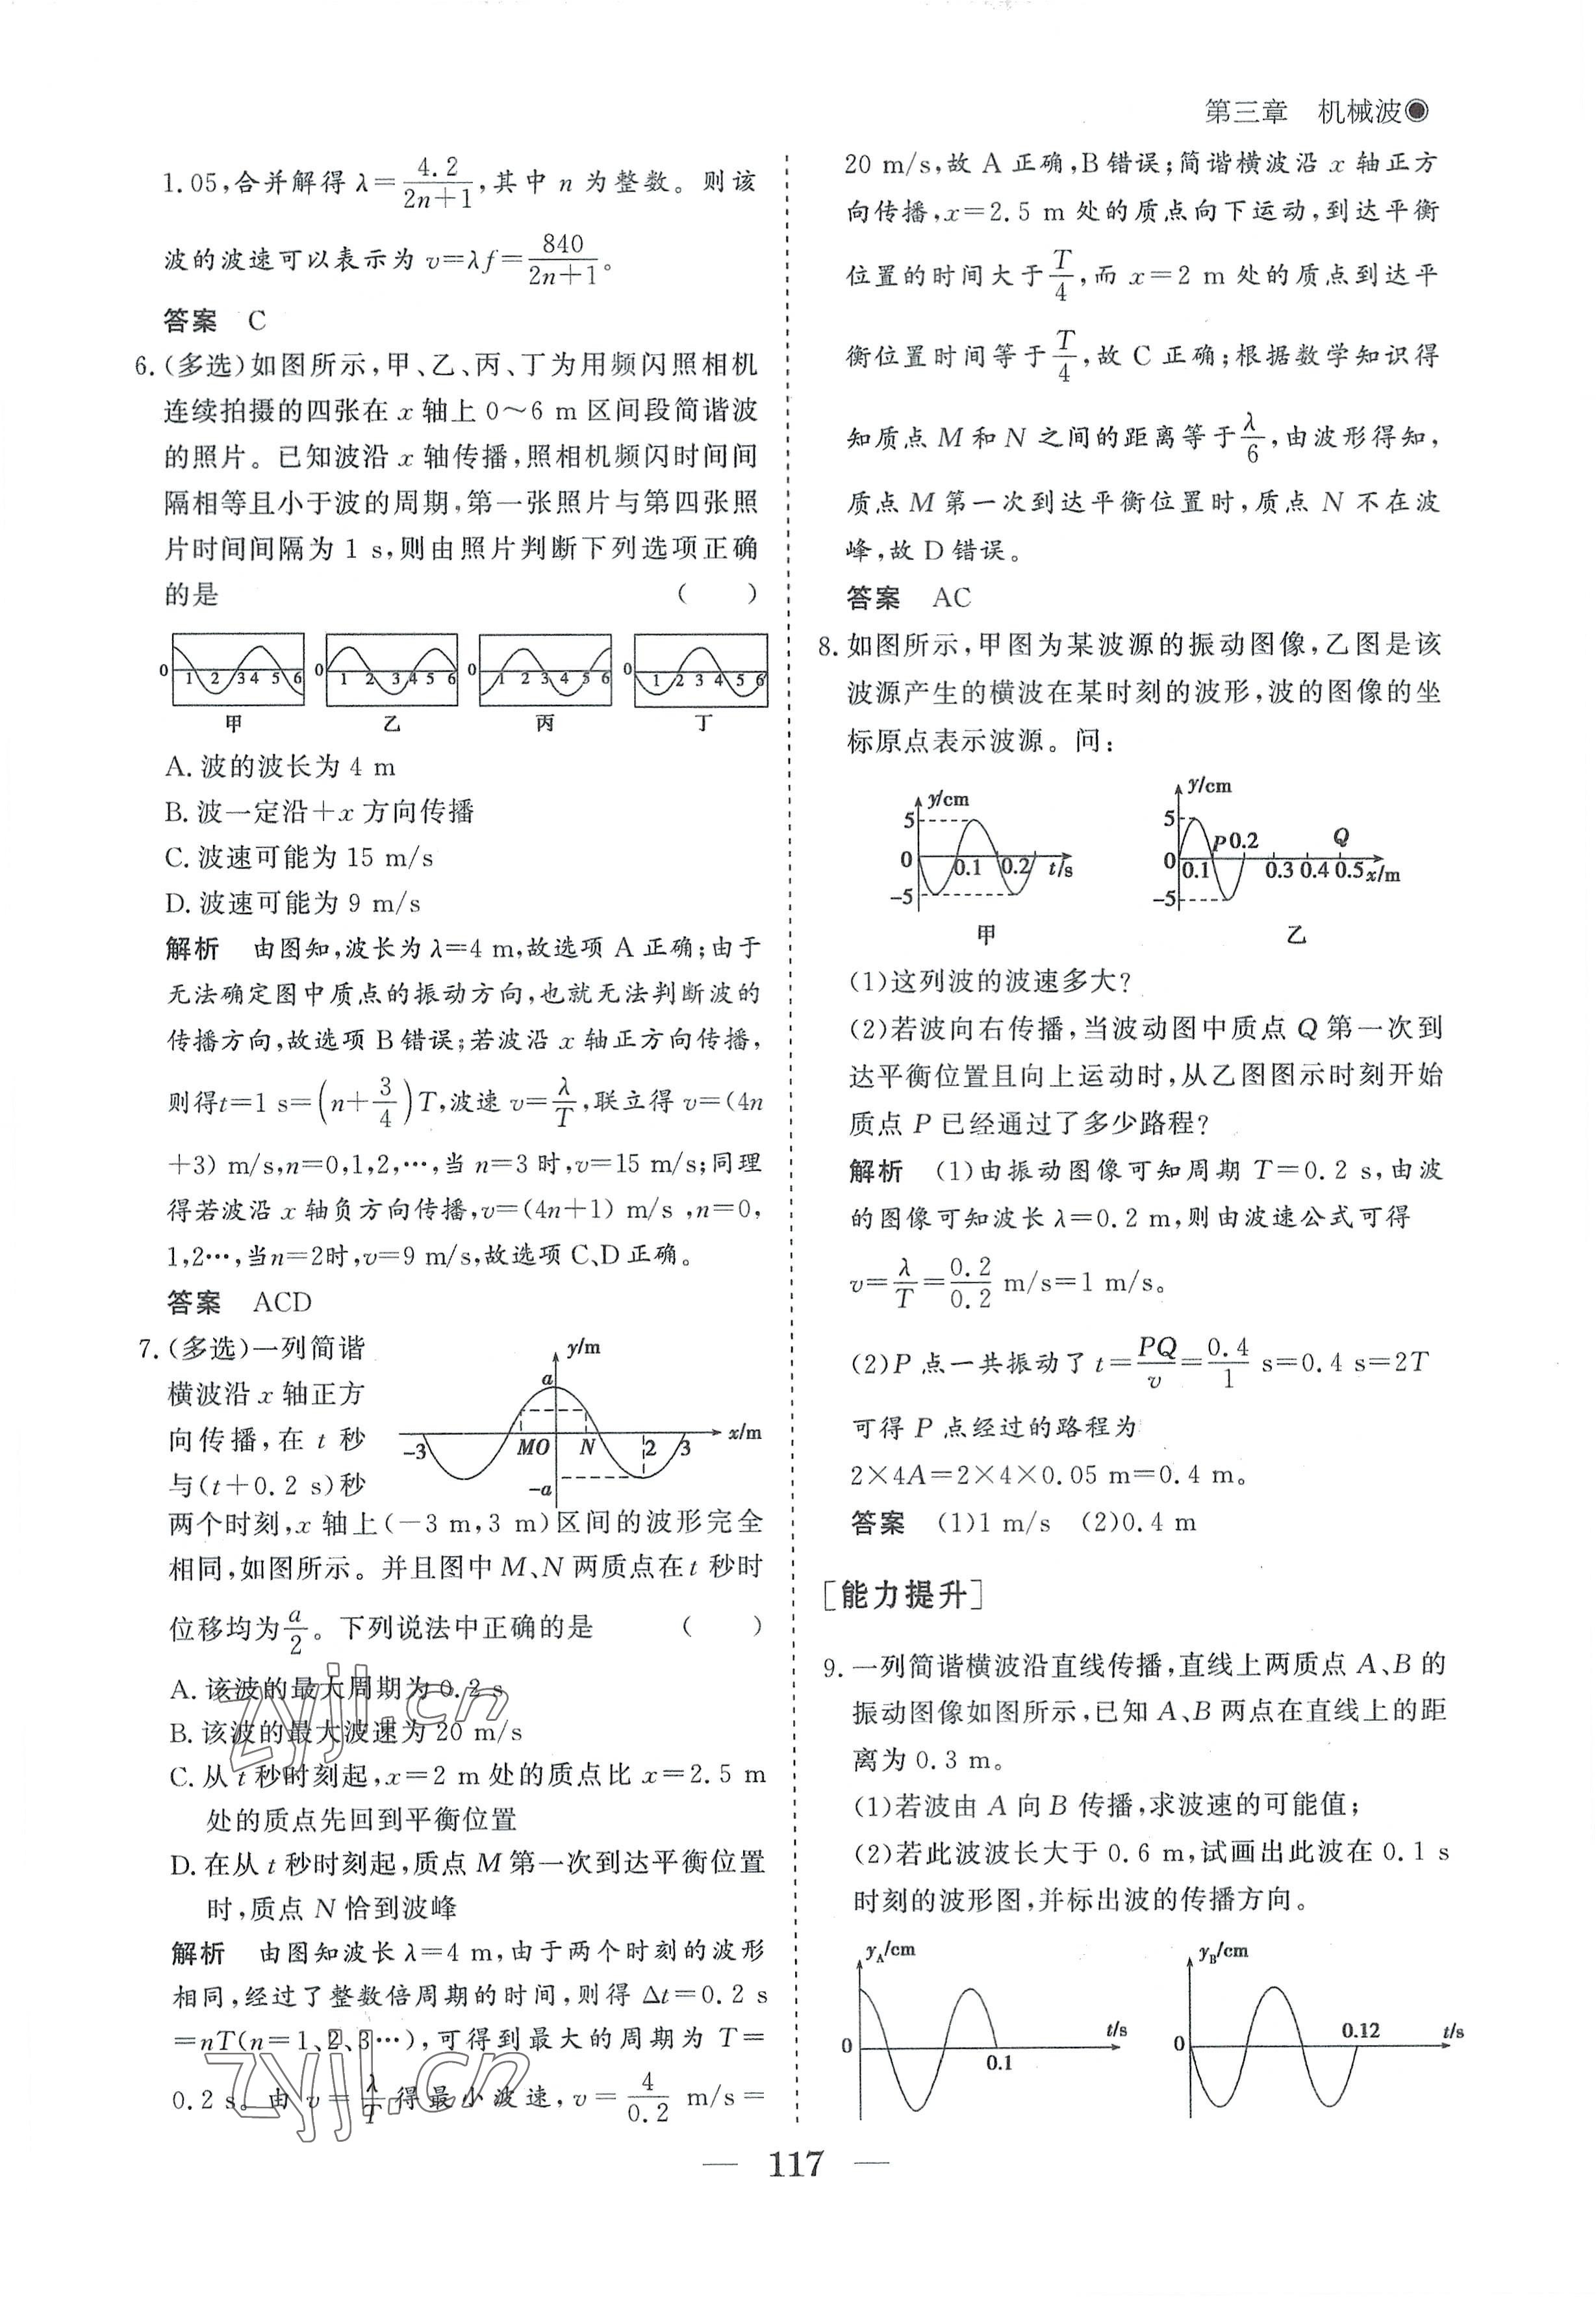 第三章　机械波
1.05,合并解得 λ=4.2/(2n+1),其中 n 为整数。则该
波的波速可以表示为 v=λf=840/(2n+1)。
答案　C
6.(多选)如图所示,甲、乙、丙、丁为用频闪照相机
连续拍摄的四张在 x 轴上 0～6 m 区间段简谐波
的照片。已知波沿 x 轴传播,照相机频闪时间间
隔相等且小于波的周期,第一张照片与第四张照
片时间间隔为 1 s,则由照片判断下列选项正确
的是　(　　)
0 1 2 3 4 5 6　0 1 2 3 4 5 6　0 1 2 3 4 5 6　0 1 2 3 4 5 6
甲　乙　丙　丁
A. 波的波长为 4 m
B. 波一定沿＋x 方向传播
C. 波速可能为 15 m/s
D. 波速可能为 9 m/s
解析　由图知,波长为 λ=4 m,故选项 A 正确;由于
无法确定图中质点的振动方向,也就无法判断波的
传播方向,故选项 B 错误;若波沿 x 轴正方向传播,
则得t=1 s=(n+3/4)T,波速 v=λ/T,联立得 v=(4n
+3) m/s,n=0,1,2,…,当 n=3 时,v=15 m/s;同理
得若波沿 x 轴负方向传播,v=(4n+1) m/s ,n=0,
1,2…,当n=2时,v=9 m/s,故选项 C、D 正确。
答案　ACD
7.(多选)一列简谐
横波沿 x 轴正方
向传播,在 t 秒
与(t+0.2 s)秒
y/m
a
-3　MO　N　2　3　x/m
-a
两个时刻,x 轴上(－3 m,3 m)区间的波形完全
相同,如图所示。并且图中 M、N 两质点在 t 秒时
位移均为a/2。下列说法中正确的是　(　　)
A. 该波的最大周期为 0.2 s
B. 该波的最大波速为 20 m/s
C. 从 t 秒时刻起,x=2 m 处的质点比 x=2.5 m
处的质点先回到平衡位置
D. 在从 t 秒时刻起,质点 M 第一次到达平衡位置
时,质点 N 恰到波峰
解析　由图知波长 λ=4 m,由于两个时刻的波形
相同,经过了整数倍周期的时间,则得 Δt=0.2 s
=nT(n=1、2、3…),可得到最大的周期为 T=
0.2 s。由 v=λ/T得最小波速,v=4/0.2 m/s=
20 m/s,故 A 正确,B 错误;简谐横波沿 x 轴正方
向传播,x=2.5 m 处的质点向下运动,到达平衡
位置的时间大于T/4,而 x=2 m 处的质点到达平
衡位置时间等于T/4,故 C 正确;根据数学知识得
知质点 M 和 N 之间的距离等于λ/6,由波形得知,
质点 M 第一次到达平衡位置时,质点 N 不在波
峰,故 D 错误。
答案　AC
8. 如图所示,甲图为某波源的振动图像,乙图是该
波源产生的横波在某时刻的波形,波的图像的坐
标原点表示波源。问:
y/cm　5　0　-5　0.1　0.2　t/s
甲
y/cm　5　0　-5　P　0.1　0.2　0.3　0.4　0.5　Q　x/m
乙
(1)这列波的波速多大?
(2)若波向右传播,当波动图中质点 Q 第一次到
达平衡位置且向上运动时,从乙图图示时刻开始
质点 P 已经通过了多少路程?
解析　(1)由振动图像可知周期 T=0.2 s,由波
的图像可知波长 λ=0.2 m,则由波速公式可得
v=λ/T=0.2/0.2 m/s=1 m/s。
(2)P 点一共振动了 t=PQ/v=0.4/1 s=0.4 s=2T
可得 P 点经过的路程为
2×4A=2×4×0.05 m=0.4 m。
答案　(1)1 m/s　(2)0.4 m
[能力提升]
9. 一列简谐横波沿直线传播,直线上两质点 A、B 的
振动图像如图所示,已知 A、B 两点在直线上的距
离为 0.3 m。
(1)若波由 A 向 B 传播,求波速的可能值;
(2)若此波波长大于 0.6 m,试画出此波在 0.1 s
时刻的波形图,并标出波的传播方向。
yA/cm　0　0.1　t/s
yB/cm　0　0.12　t/s
zyjl.cn
zyjl.cn
— 117 —